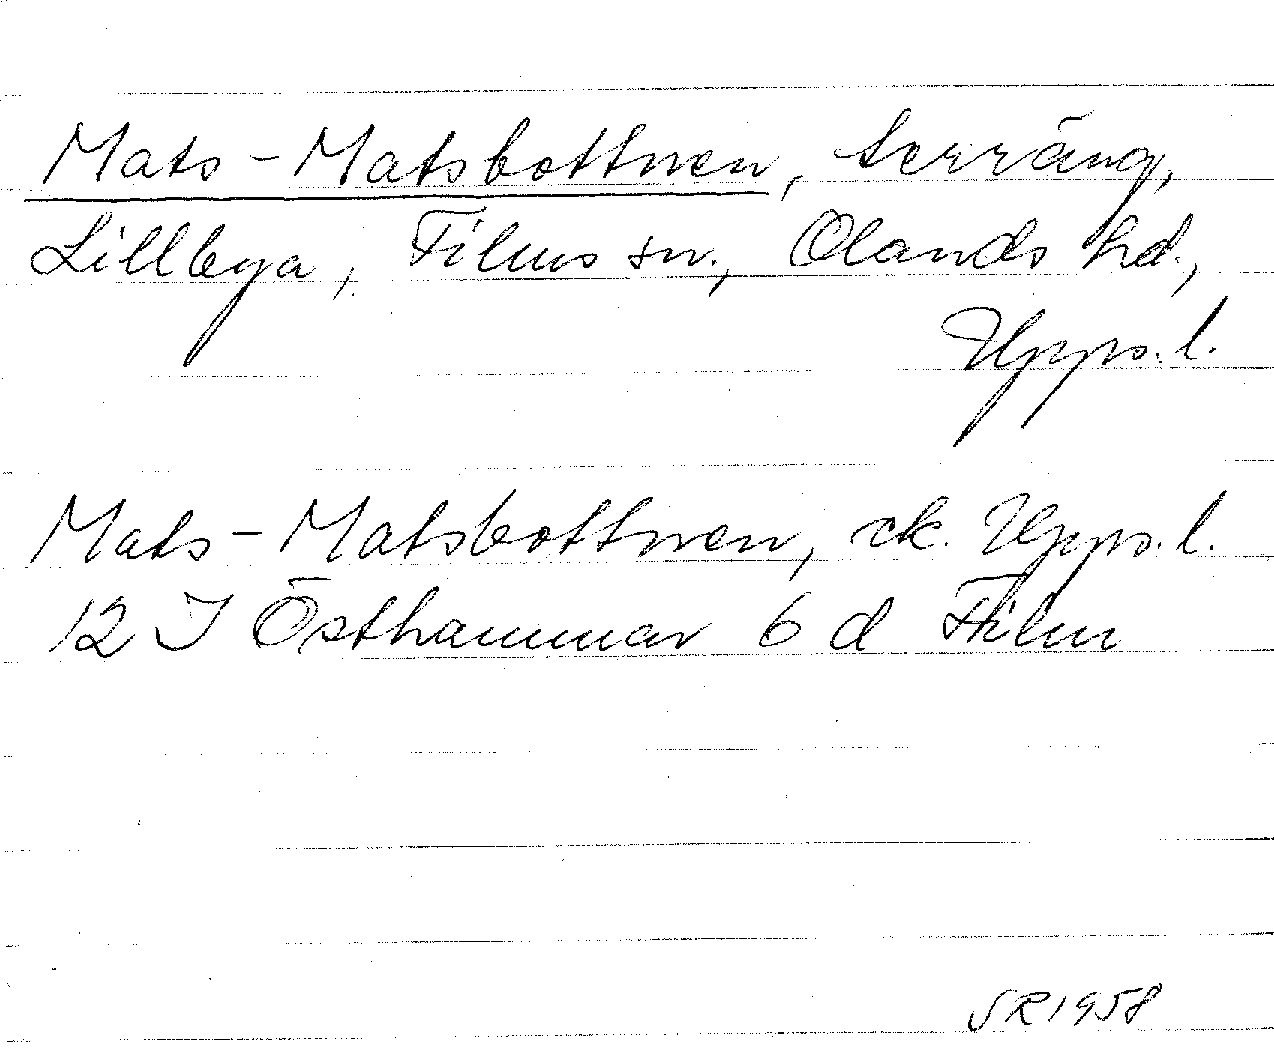 Mats-Matsbottnen, terräng,
Lillbya, Films sn., Olands hd.,
Upps. l.
Mats-Matsbottnen, ek. Upps. l.
12 I Östhammar 6 d Film
SR 1958